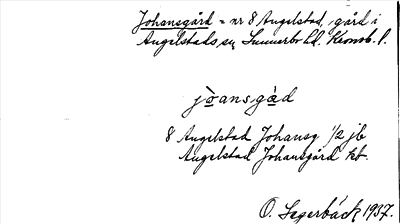 Johansgård = nr 8 Angelstad, gård i
Angelstads sn Sunnerbo hd. Kronob. l.
jòansgàd
8 Angelstad Johansg 1/2 jb
Angelstad Johansgård kt.
O. Segerbäck 1937.